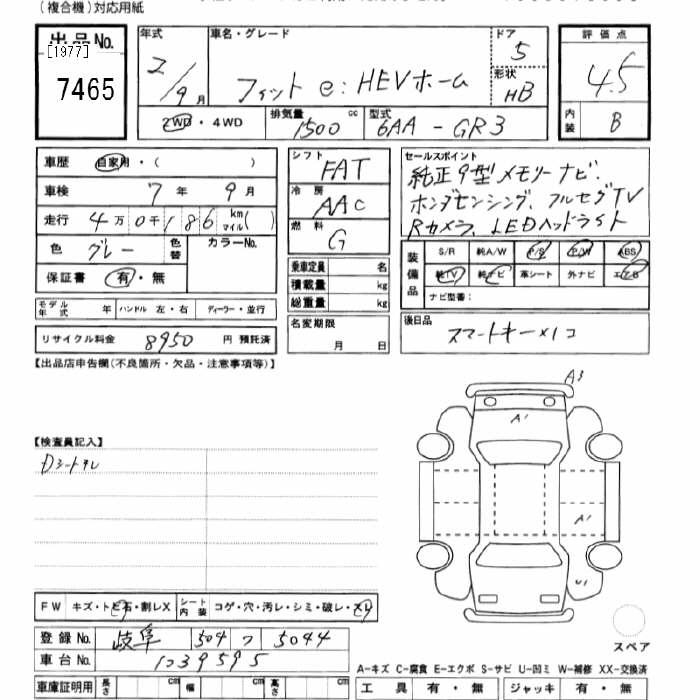 (複合機)対応用紙
出品No. [1977] 7465
年式 2/9月
車名・グレード フィット e:HEVホーム
ドア 5
形状 HB
評価点 4.5
内装 B
2WD・4WD
排気量 1500 cc
型式 6AA-GR3
車歴 自家用・( )
車検 7年 9月
走行 4万0千186 km マイル( )
色 グレー 色替
カラーNo.
保証書 有・無
シフト FAT
冷房 AAC
燃料 G
乗車定員 名
積載量 kg
総重量 kg
名変期限 月 日
セールスポイント
純正9型メモリーナビ、
ホンダセンシング、フルセグTV
Rカメラ、LEDヘッドライト
装備品 S/R 純A/W P/S P/W ABS
純TV 純ナビ 革シート 外ナビ エアB
ナビ型番:
モデル年式 年 ハンドル 左・右 ディーラー・並行
リサイクル料金 8950 円 預託済
後日品 スマートキー×1コ
【出品店申告欄(不良箇所・欠品・注意事項等)】
A3
A1
【検査員記入】
Dシートスレ
A1
U1
FW キズ・トビ石・割レX シート内装 コゲ・穴・汚レ・シミ・破レ・スレ
スペア
登録No. 岐阜 504 フ 5044
車台No. 1039595
A-キズ C-腐食 E-エクボ S-サビ U-凹ミ W-補修 XX-交換済
車庫証明用 長さ cm 幅 cm 高さ cm
工具 有・無 ジャッキ 有・無